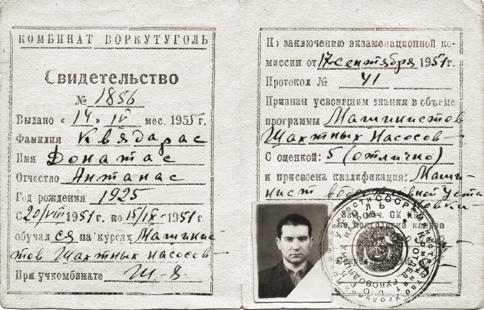 КОМБИНАТ ВОРКУТУГОЛЬ
Свидетельство
№ 1856
Выдано «14» IV мес. 1955 г.
Фамилия Квядарас
Имя Донатас
Отчество Антанас
Год рождения 1925
С 20/VIII 1951 г. по 15/IX-1951 г.
обучался на курсах Машинис-
тов Шахтных насосов-
При учкомбинате Ш-8.
По заключению экзаменационной ко-
миссии от 17 сентября 1951 г.
Протокол № 41
Признан усвоившим знания в объеме
программы Машинистов
Шахтных Насосов-
С оценкой: 5 (отлично)
и присвоена квалификация: Маши-
нист водоотливной уста
новки